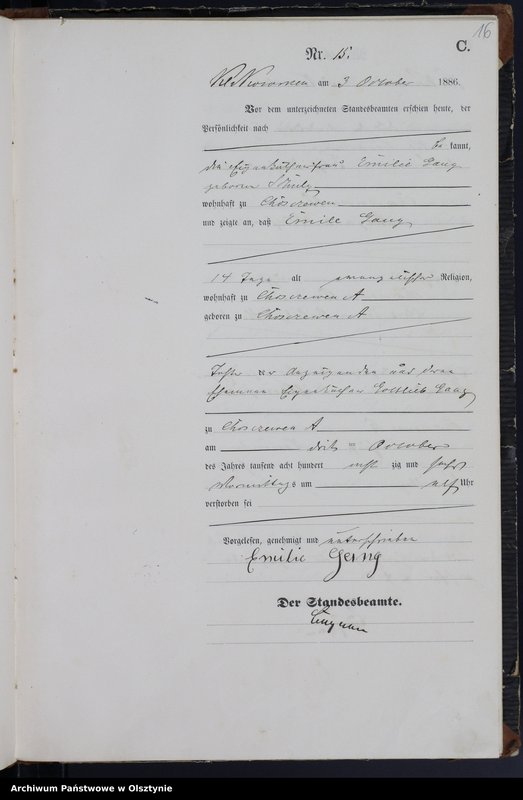 16
C.
Nr. 15.
am 3 October 1886.
Vor dem unterzeichneten Standesbeamten erschien heute, der
Persönlichkeit nach
be kannt,
die Eigenkäthnerfrau Emilie Gang
geborene
wohnhaft zu Chosczewen
und zeigte an, daß Emilie Gang
14 Tage alt evangelischer Religion,
wohnhaft zu Choszewen A
geboren zu Choszewen A
Tochter der Anzeigenden und deren
Ehemann Eigenkäthner Gottlieb Gang
zu Choszewen A
am dritten October
des Jahres tausend acht hundert acht zig und sechs
Vormittags um elf Uhr
verstorben sei
Vorgelesen, genehmigt und unterschrieben
Emilie Geing
Der Standesbeamte.
Archiwum Państwowe w Olsztynie